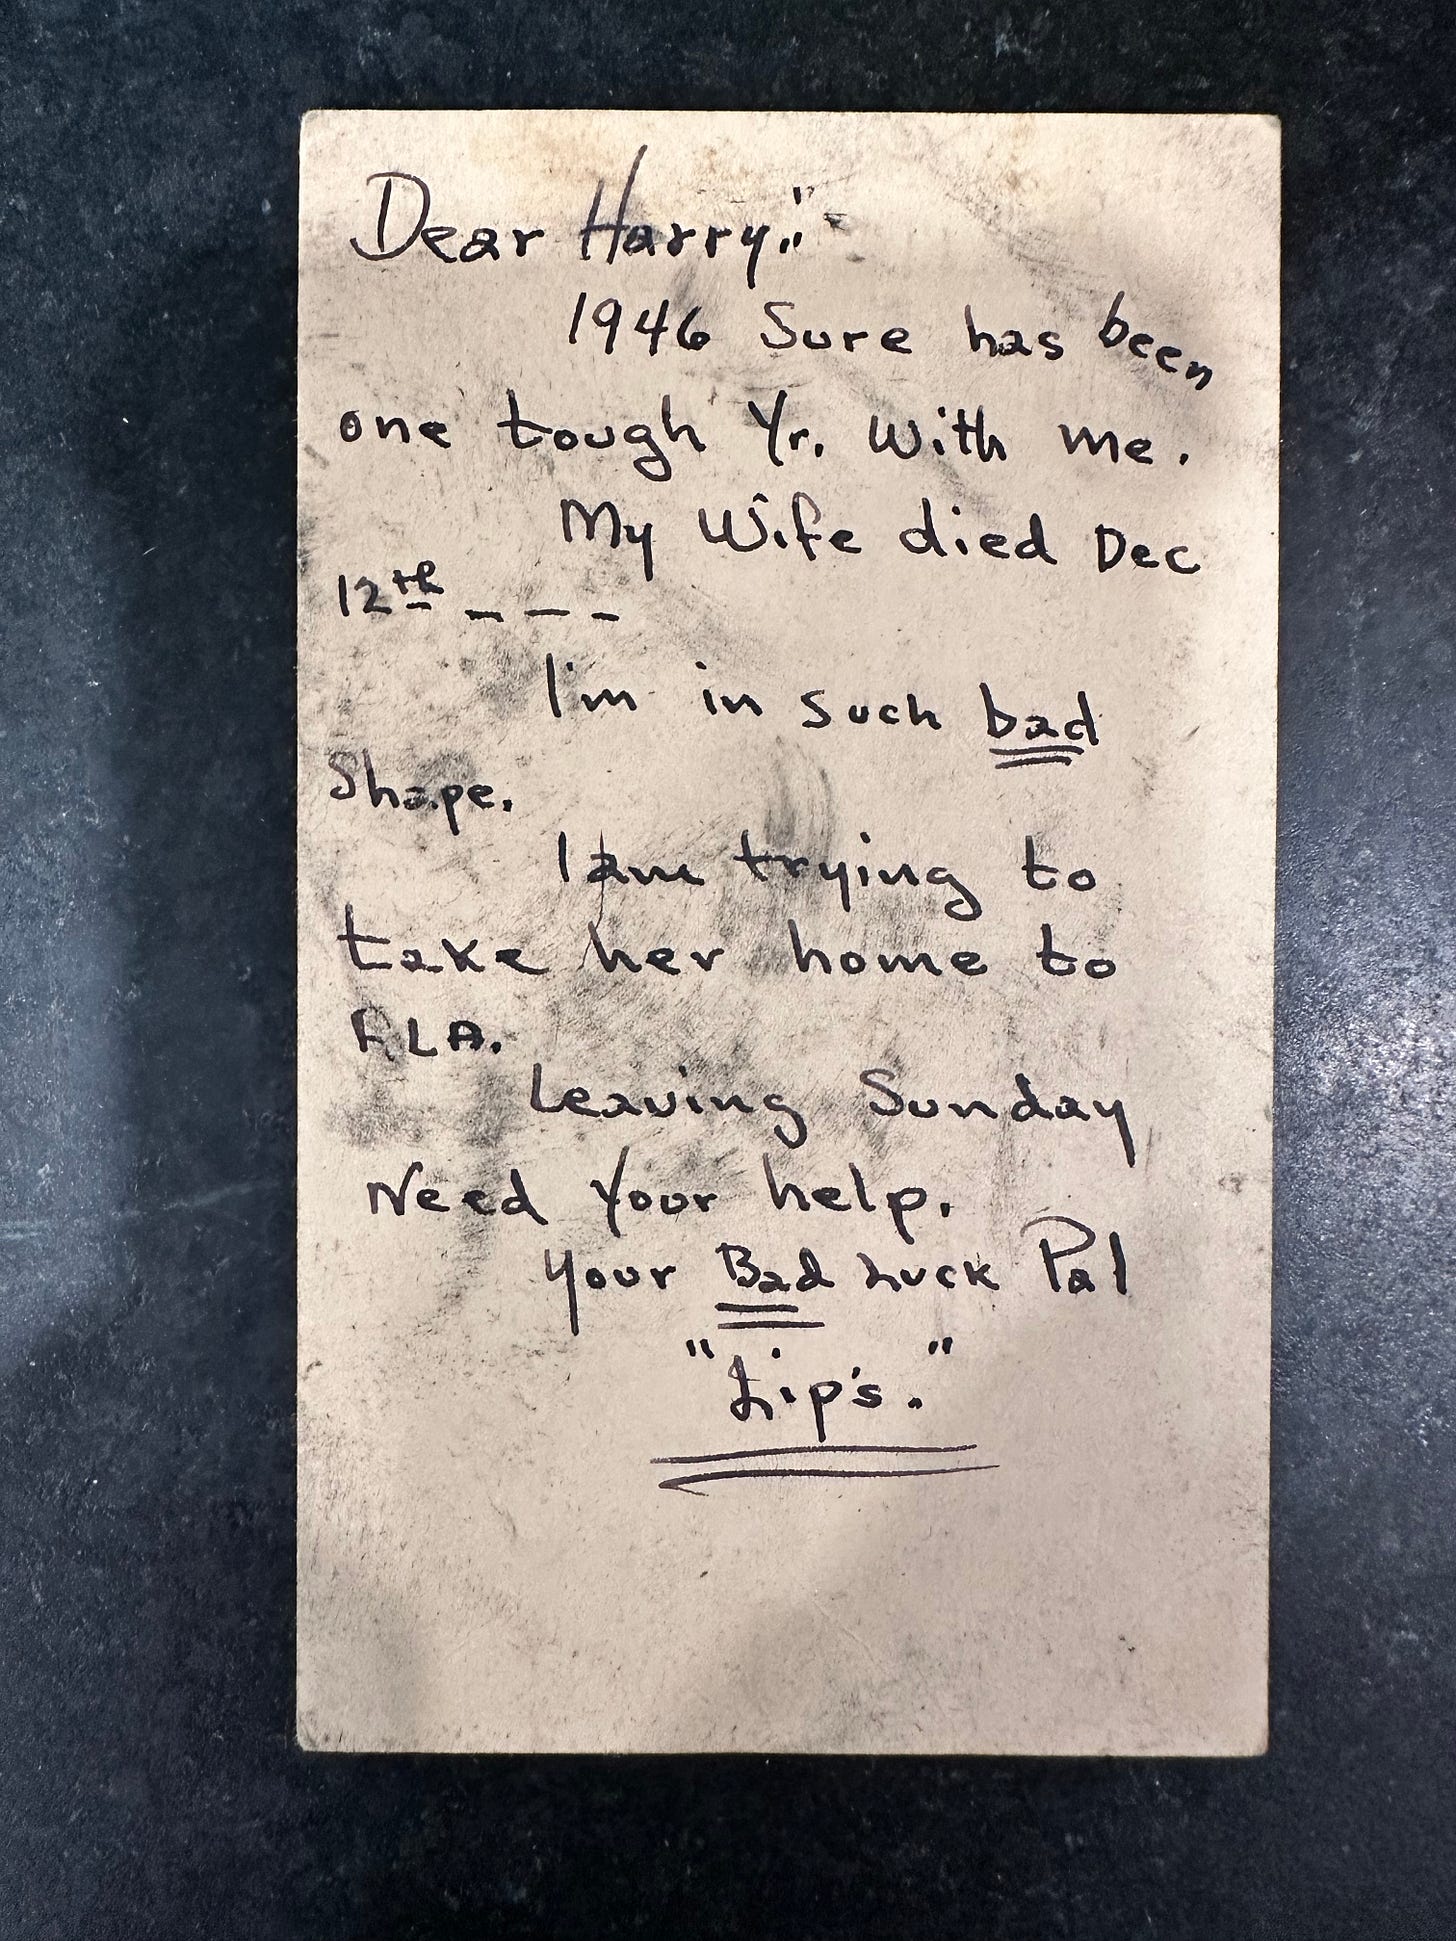 Dear Harry:"-
1946 Sure has been
one tough Yr. With me.
My Wife died Dec
12th - - - -
I'm in such bad
Shape.
I am trying to
take her home to
FLA.
Leaving Sunday
Need Your help.
Your Bad Luck Pal
"Lip's."